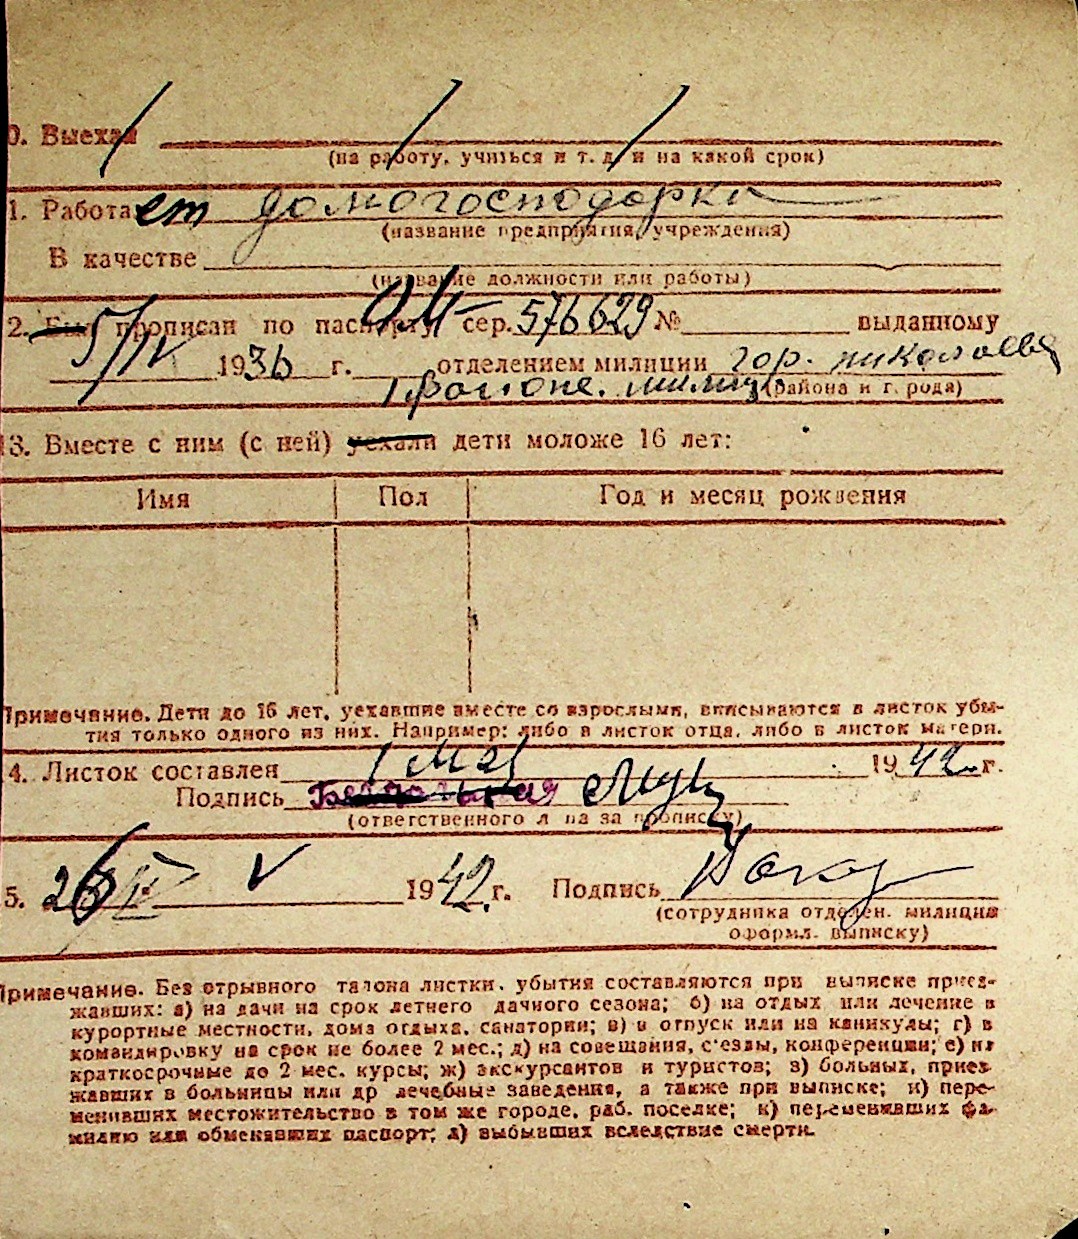 0. Выехал
(на работу, учиться и т. д. и на какой срок)
1. Работает домогосподарки
(название предприятия, учреждения)
В качестве
(название должности или работы)
2. Был прописан по паспорту ОМ сер. 576629 № выданному
5/IV 1936 г. отделением милиции гор. николаева
1 районе. милиц (района и города)
13. Вместе с ним (с ней) уехали дети моложе 16 лет:
Имя Пол Год и месяц рождения
Примечание. Дети до 16 лет, уехавшие вместе со взрослыми, вписываются в листок убы-
тия только одного из них. Например: либо в листок отца, либо в листок матери.
4. Листок составлен 1 мая 1942 г.
Подпись
(ответственного лица за прописку)
5. 26 IV V 1942 г. Подпись
(сотрудника отделен. милиции
оформл. выписку)
Примечание. Без отрывного талона листки убытия составляются при выписке приез-
жавших: а) на дачи на срок летнего дачного сезона; б) на отдых или лечение в
курортные местности, дома отдыха, санатории; в) в отпуск или на каникулы; г) в
командировку на срок не более 2 мес.; д) на совещания, с'езды, конференции; е) на
краткосрочные до 2 мес. курсы; ж) экскурсантов и туристов; з) больных, приез-
жавших в больницы или др лечебные заведения, а также при выписке; и) пере-
менивших местожительство в том же городе, раб. поселке; к) переменивших фа-
милию или обменявших паспорт; л) выбывших вследствие смерти.